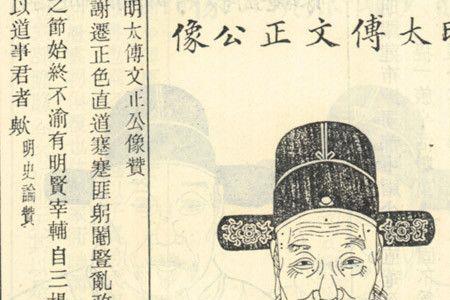 明太傅文正公像
明太傅文正公像贊
謝遷正色直道蹇蹇匪躬閹豎亂政
之節始終不渝有明賢宰輔自三楊
以道事君者歟明史論贊